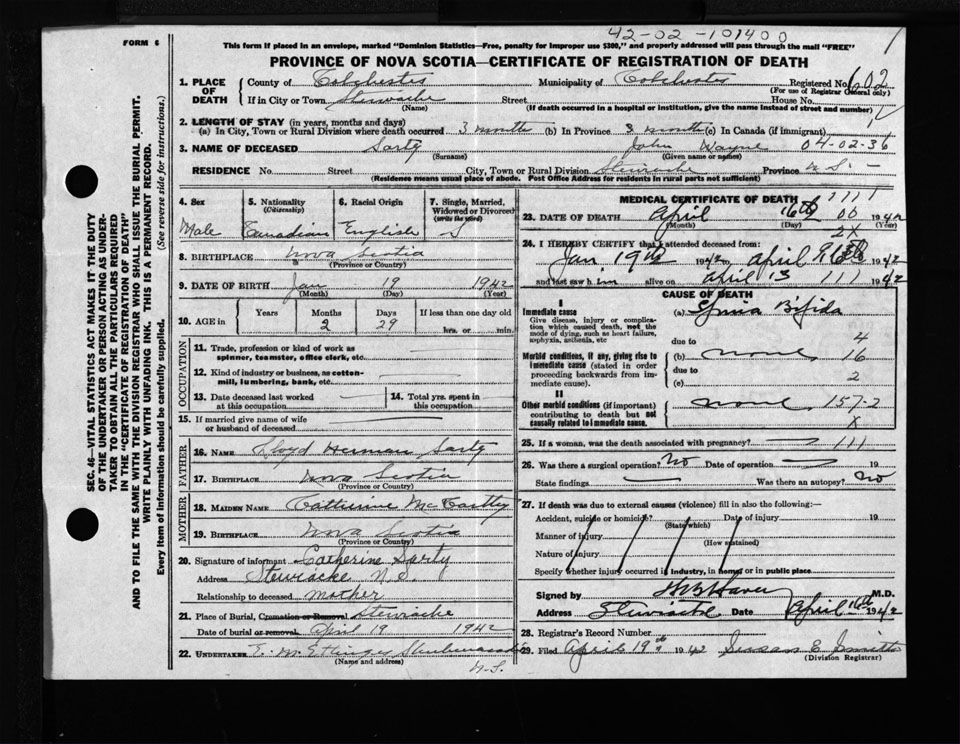 42-02-101400
FORM 6
This form if placed in an envelope, marked "Dominion Statistics—Free, penalty for improper use $300," and properly addressed will pass through the mail "FREE"
PROVINCE OF NOVA SCOTIA—CERTIFICATE OF REGISTRATION OF DEATH
1. PLACE OF DEATH County of Colchester Municipality of Colchester Registered No. 602
(For use of Registrar General only)
If in City or Town Stewiacke Street House No.
(Name) (If death occurred in a hospital or institution, give the name instead of street and number)
2. LENGTH OF STAY (in years, months and days)
(a) In City, Town or Rural Division where death occurred 3 months (b) In Province 3 months (c) In Canada (if immigrant)
3. NAME OF DECEASED Sarty John Wayne 04-02-36
(Surname) (Given name or names)
RESIDENCE No. Street City, Town or Rural Division Stewiacke Province N.S.
(Residence means usual place of abode. Post Office Address for residents in rural parts not sufficient)
4. Sex Male
5. Nationality (Citizenship) Canadian
6. Racial Origin English
7. Single, Married, Widowed or Divorced (write the word) S
8. BIRTHPLACE Nova Scotia
(Province or Country)
9. DATE OF BIRTH Jan 19 1942
(Month) (Day) (Year)
10. AGE in Years Months Days If less than one day old
2 29 hrs. or min.
OCCUPATION
11. Trade, profession or kind of work as spinner, teamster, office clerk, etc.
12. Kind of industry or business, as cotton-mill, lumbering, bank, etc.
13. Date deceased last worked at this occupation
14. Total yrs. spent in this occupation
15. If married give name of wife or husband of deceased
FATHER
16. NAME Lloyd Herman Sarty
17. BIRTHPLACE Nova Scotia
(Province or Country)
MOTHER
18. MAIDEN NAME Catherine McCarthy
19. BIRTHPLACE Nova Scotia
(Province or Country)
20. Signature of informant Catherine Sarty
Address Stewiacke N.S.
Relationship to deceased Mother
21. Place of Burial, Cremation or Removal Stewiacke
Date of burial or removal April 19 1942
22. UNDERTAKER E. M. Ettinger Shubenacadie
(Name and address) N.S.
MEDICAL CERTIFICATE OF DEATH 1111
23. DATE OF DEATH April 16th 00 1942
(Month) (Day) 2X
24. I HEREBY CERTIFY that I attended deceased from:
Jan. 19th 1942 to April 16th 1942
and last saw him alive on April 13 111 1942
CAUSE OF DEATH
I
Immediate cause
Give disease, injury or complication which caused death, not the mode of dying, such as heart failure, asphyxia, asthenia, etc
(a) Spina Bifida
due to 4
Morbid conditions, if any, giving rise to immediate cause (stated in order proceeding backwards from immediate cause).
(b) none 16
due to
(c) 2
II
Other morbid conditions (if important) contributing to death but not causally related to immediate cause.
none 157-2
X
25. If a woman, was the death associated with pregnancy? 111
26. Was there a surgical operation? No Date of operation 19
State findings Was there an autopsy? No
27. If death was due to external causes (violence) fill in also the following:
Accident, suicide or homicide? Date of injury 19
(State which)
Manner of injury
(How sustained)
Nature of injury
Specify whether injury occurred in industry, in home or in public place
Signed by M.D.
Address Stewiacke Date April 16th 1942
28. Registrar's Record Number
29. Filed April 19th 1942 Susan E Smith
(Division Registrar)
SEC. 46—VITAL STATISTICS ACT MAKES IT THE DUTY
OF THE UNDERTAKER OR PERSON ACTING AS UNDER-
TAKER TO OBTAIN ALL THE PARTICULARS REQUIRED
IN THE "CERTIFICATE OF REGISTRATION OF DEATH"
AND TO FILE THE SAME WITH THE DIVISION REGISTRAR WHO SHALL ISSUE THE BURIAL PERMIT.
WRITE PLAINLY WITH UNFADING INK. THIS IS A PERMANENT RECORD.
Every item of information should be carefully supplied. (See reverse side for instructions.)